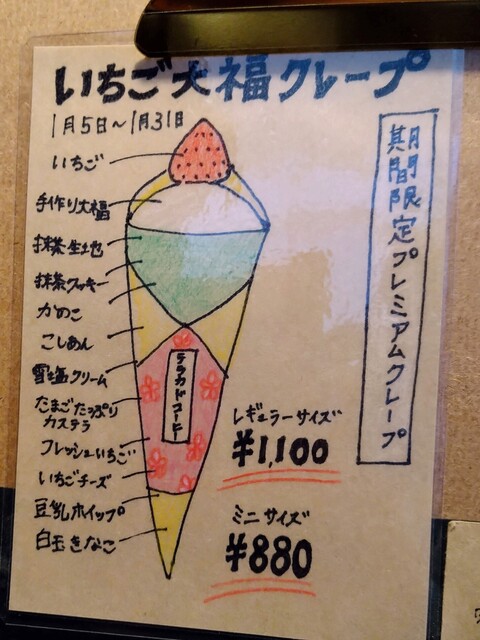 いちご大福クレープ
1月5日~1月31日
期間限定プレミアムクレープ
いちご
手作り大福
抹茶生地
抹茶クッキー
かのこ
こしあん
雪塩クリーム
たまごたっぷり
カステラ
フレッシュいちご
いちごチーズ
豆乳ホイップ
白玉きなこ
テラカドコーヒー
レギュラーサイズ
¥1,100
ミニサイズ
¥880